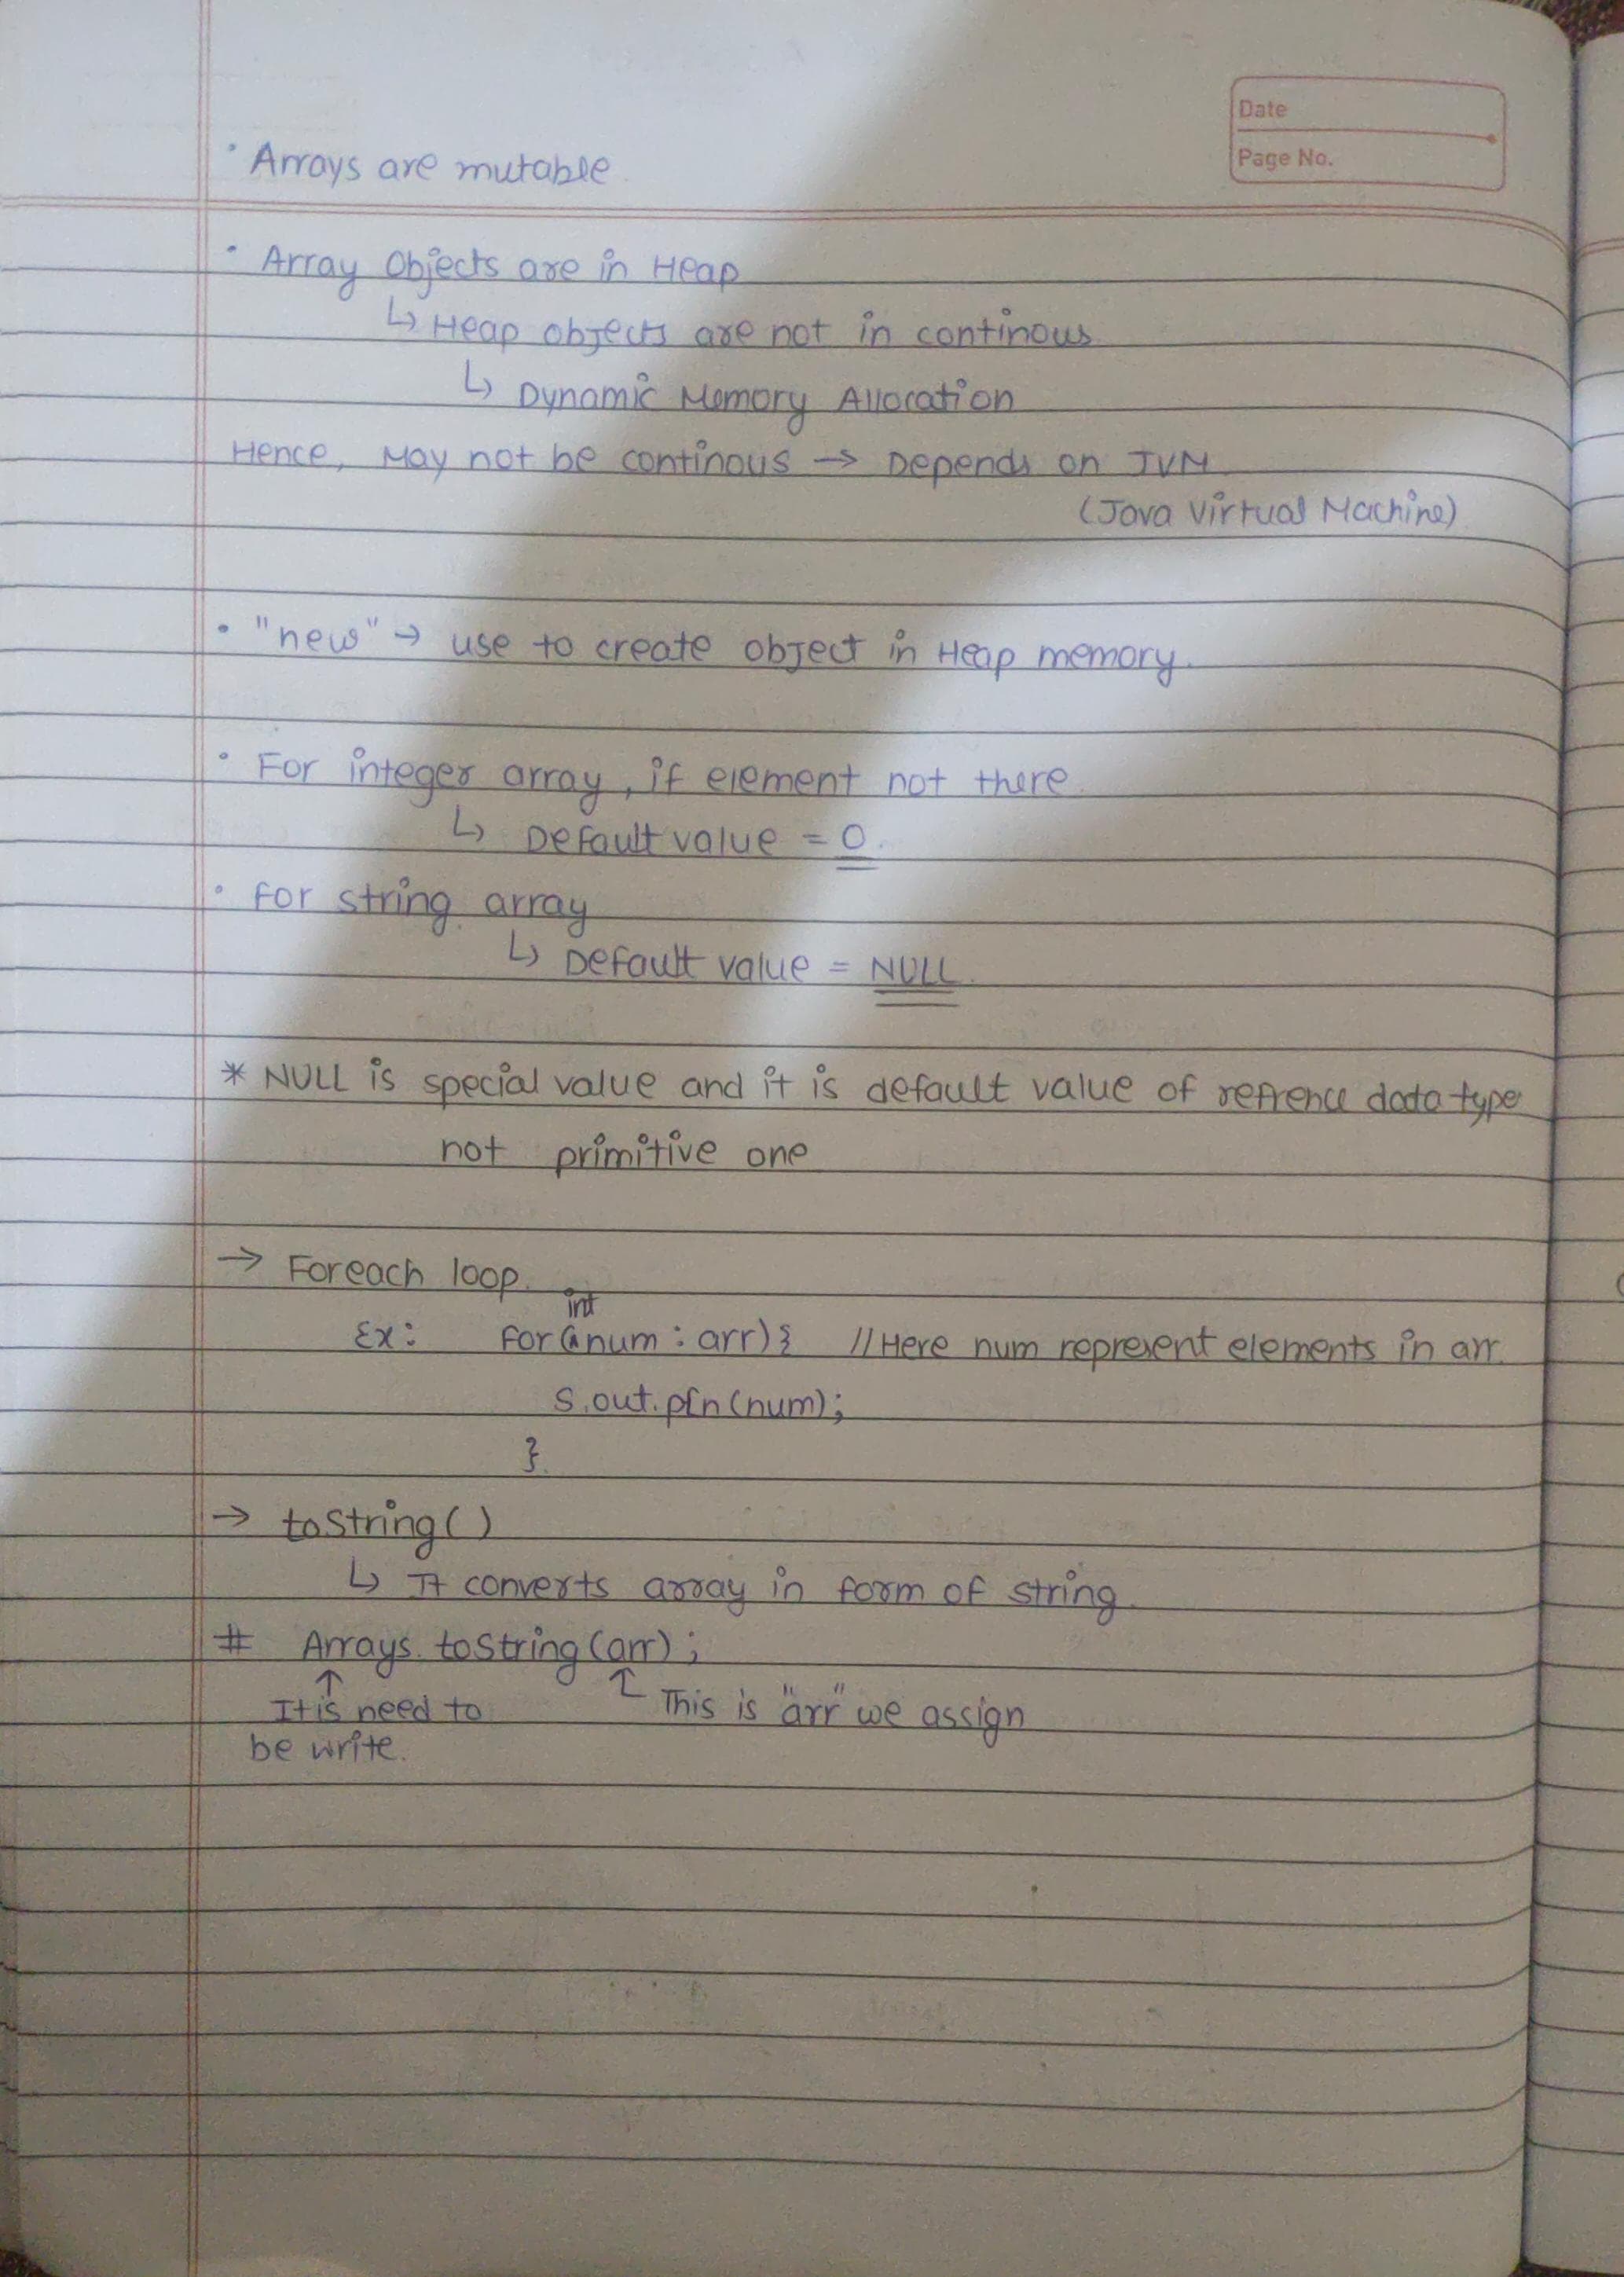 Date
Page No.
• Arrays are mutable
• Array Objects are in Heap
↳ Heap objects are not in continous
↳ Dynamic Memory Allocation
Hence, May not be continous → Depends on JVM
(Java Virtual Machine)
• "new" → use to create object in Heap memory.
• For integer array, if element not there
↳ Default value = 0.
• for string array
↳ Default value = NULL.
* NULL is special value and it is default value of refrence data type
not primitive one
→ Foreach loop.
int
Ex: for(num : arr){ //Here num represent elements in arr.
S.out.pln(num);
}
→ toString()
↳ It converts array in form of string.
# Arrays.toString(arr);
↑ It is need to ↑ This is "arr" we assign
be write.